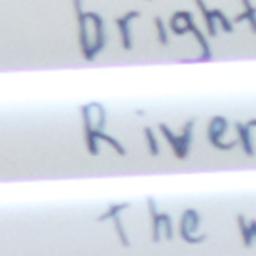 bright
River
The